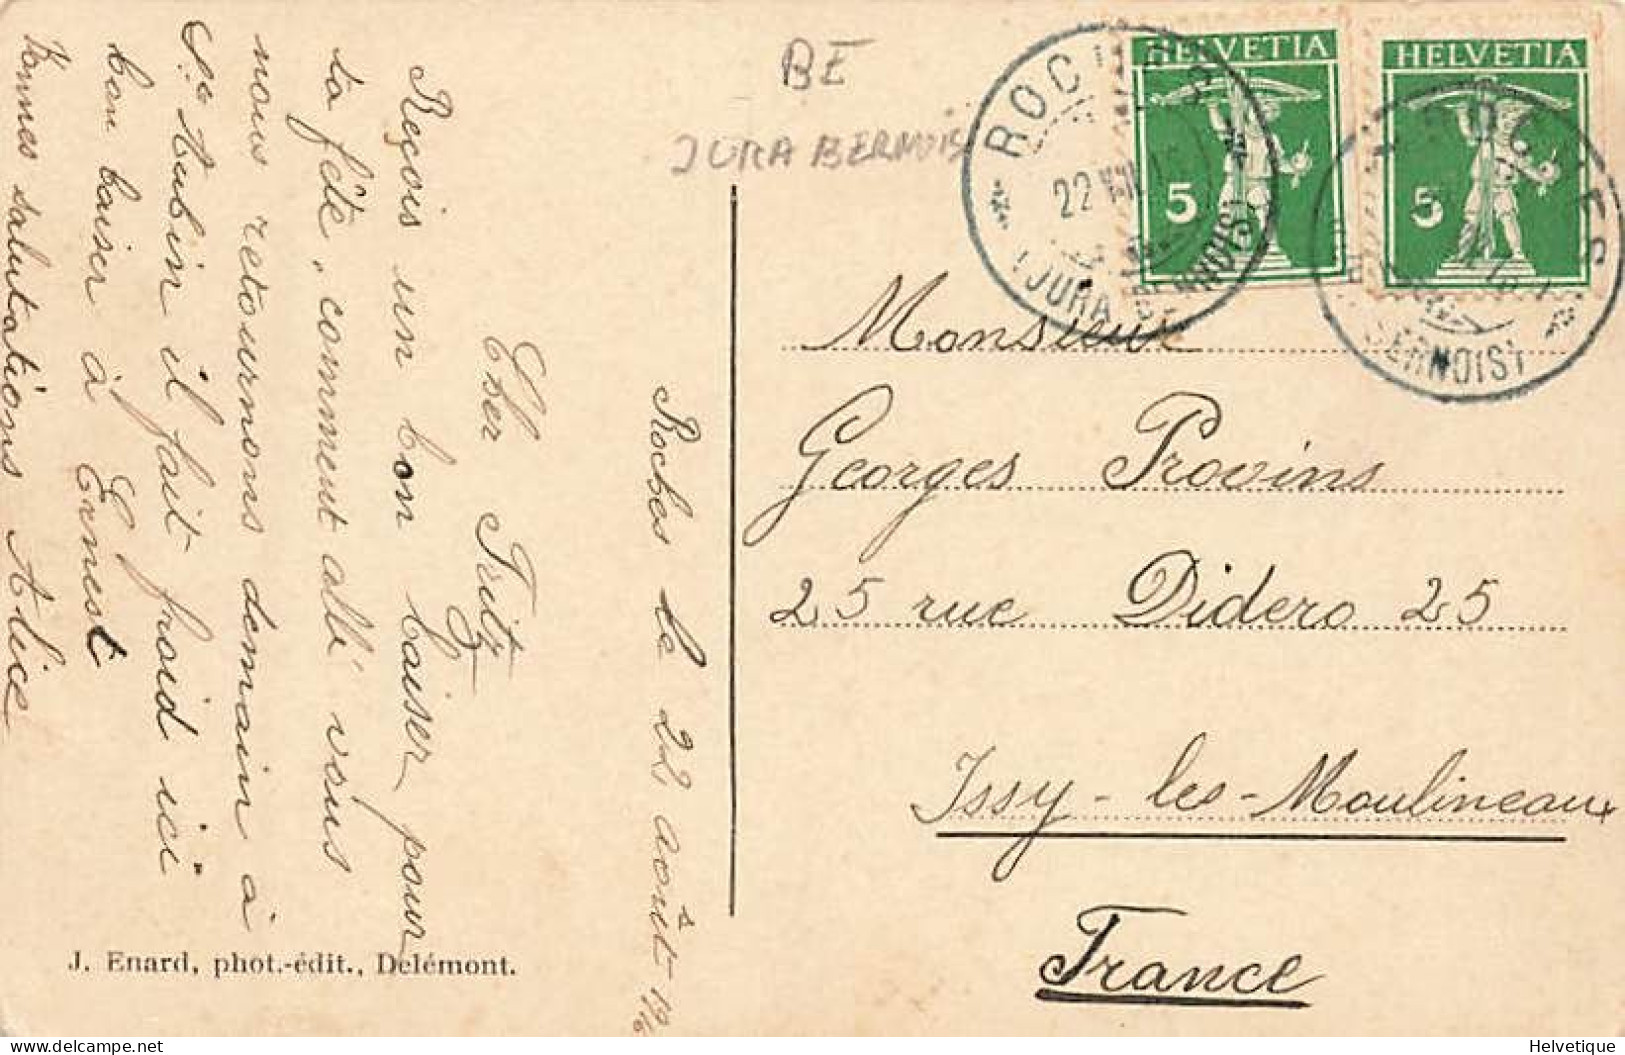 Roches le 22 août 19
Cher Fritz
Reçois un bon baiser pour
ta fête, comment allé vous
nous retournons demain à
St Aubin il fait froid ici
bon baiser à Ernest
Bonnes salutations Alice
J. Enard, phot.-édit., Delémont.
BE
JURA BERNOIS
HELVETIA
5
HELVETIA
5
ROCHES
22 VIII
(JURA BERNOIS)
ROCHES
BERNOIS)
Monsieur
Georges Provins
25 rue Didero 25
Issy-les-Moulineaux
France
delcampe.net
Helvetique